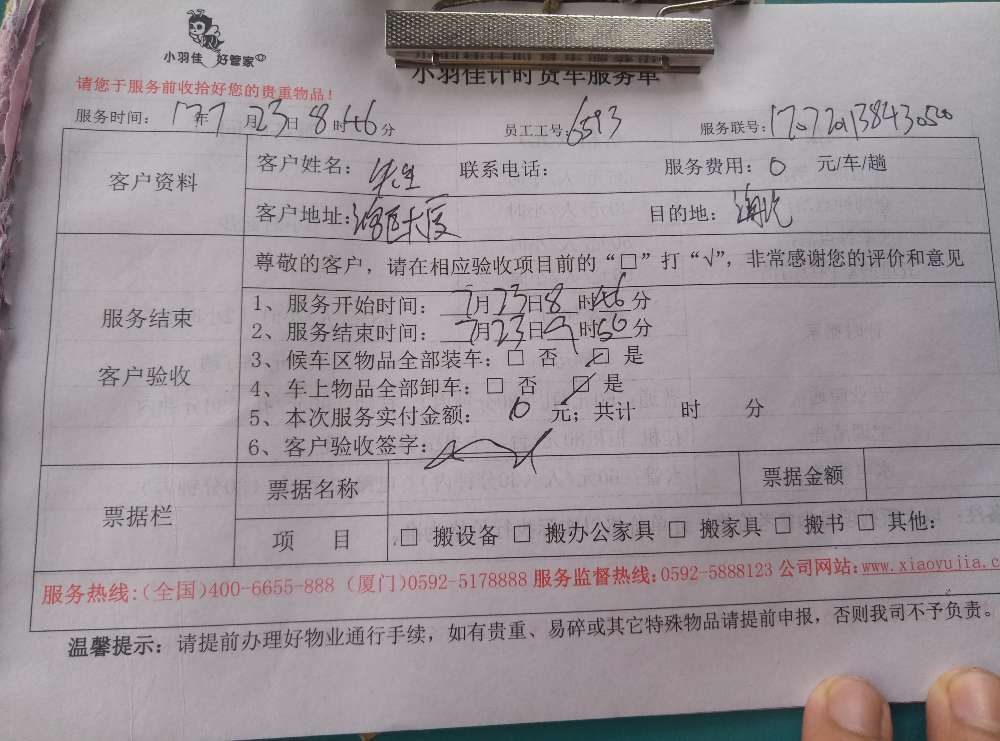 小羽佳 好管家
小羽佳计时货车服务单
请您于服务前收拾好您的贵重物品！
服务时间： 17年7月23日8时46分 员工工号：6593 服务联号：
客户资料
客户姓名：先生 联系电话： 服务费用：0 元/车/趟
客户地址： 目的地：
服务结束
客户验收
尊敬的客户，请在相应验收项目前的“□”打“√”，非常感谢您的评价和意见
1、服务开始时间：7月23日8时46分
2、服务结束时间：7月23日9时56分
3、候车区物品全部装车：□ 否 ☑ 是
4、车上物品全部卸车：□ 否 ☑ 是
5、本次服务实付金额：0 元；共计 时 分
6、客户验收签字：
票据栏
票据名称 票据金额
项 目 □ 搬设备 □ 搬办公家具 □ 搬家具 □ 搬书 □ 其他：
服务热线：（全国）400-6655-888（厦门）0592-5178888 服务监督热线：0592-5888123 公司网站：www.xiaoyujia.c
温馨提示：请提前办理好物业通行手续，如有贵重、易碎或其它特殊物品请提前申报，否则我司不予负责。